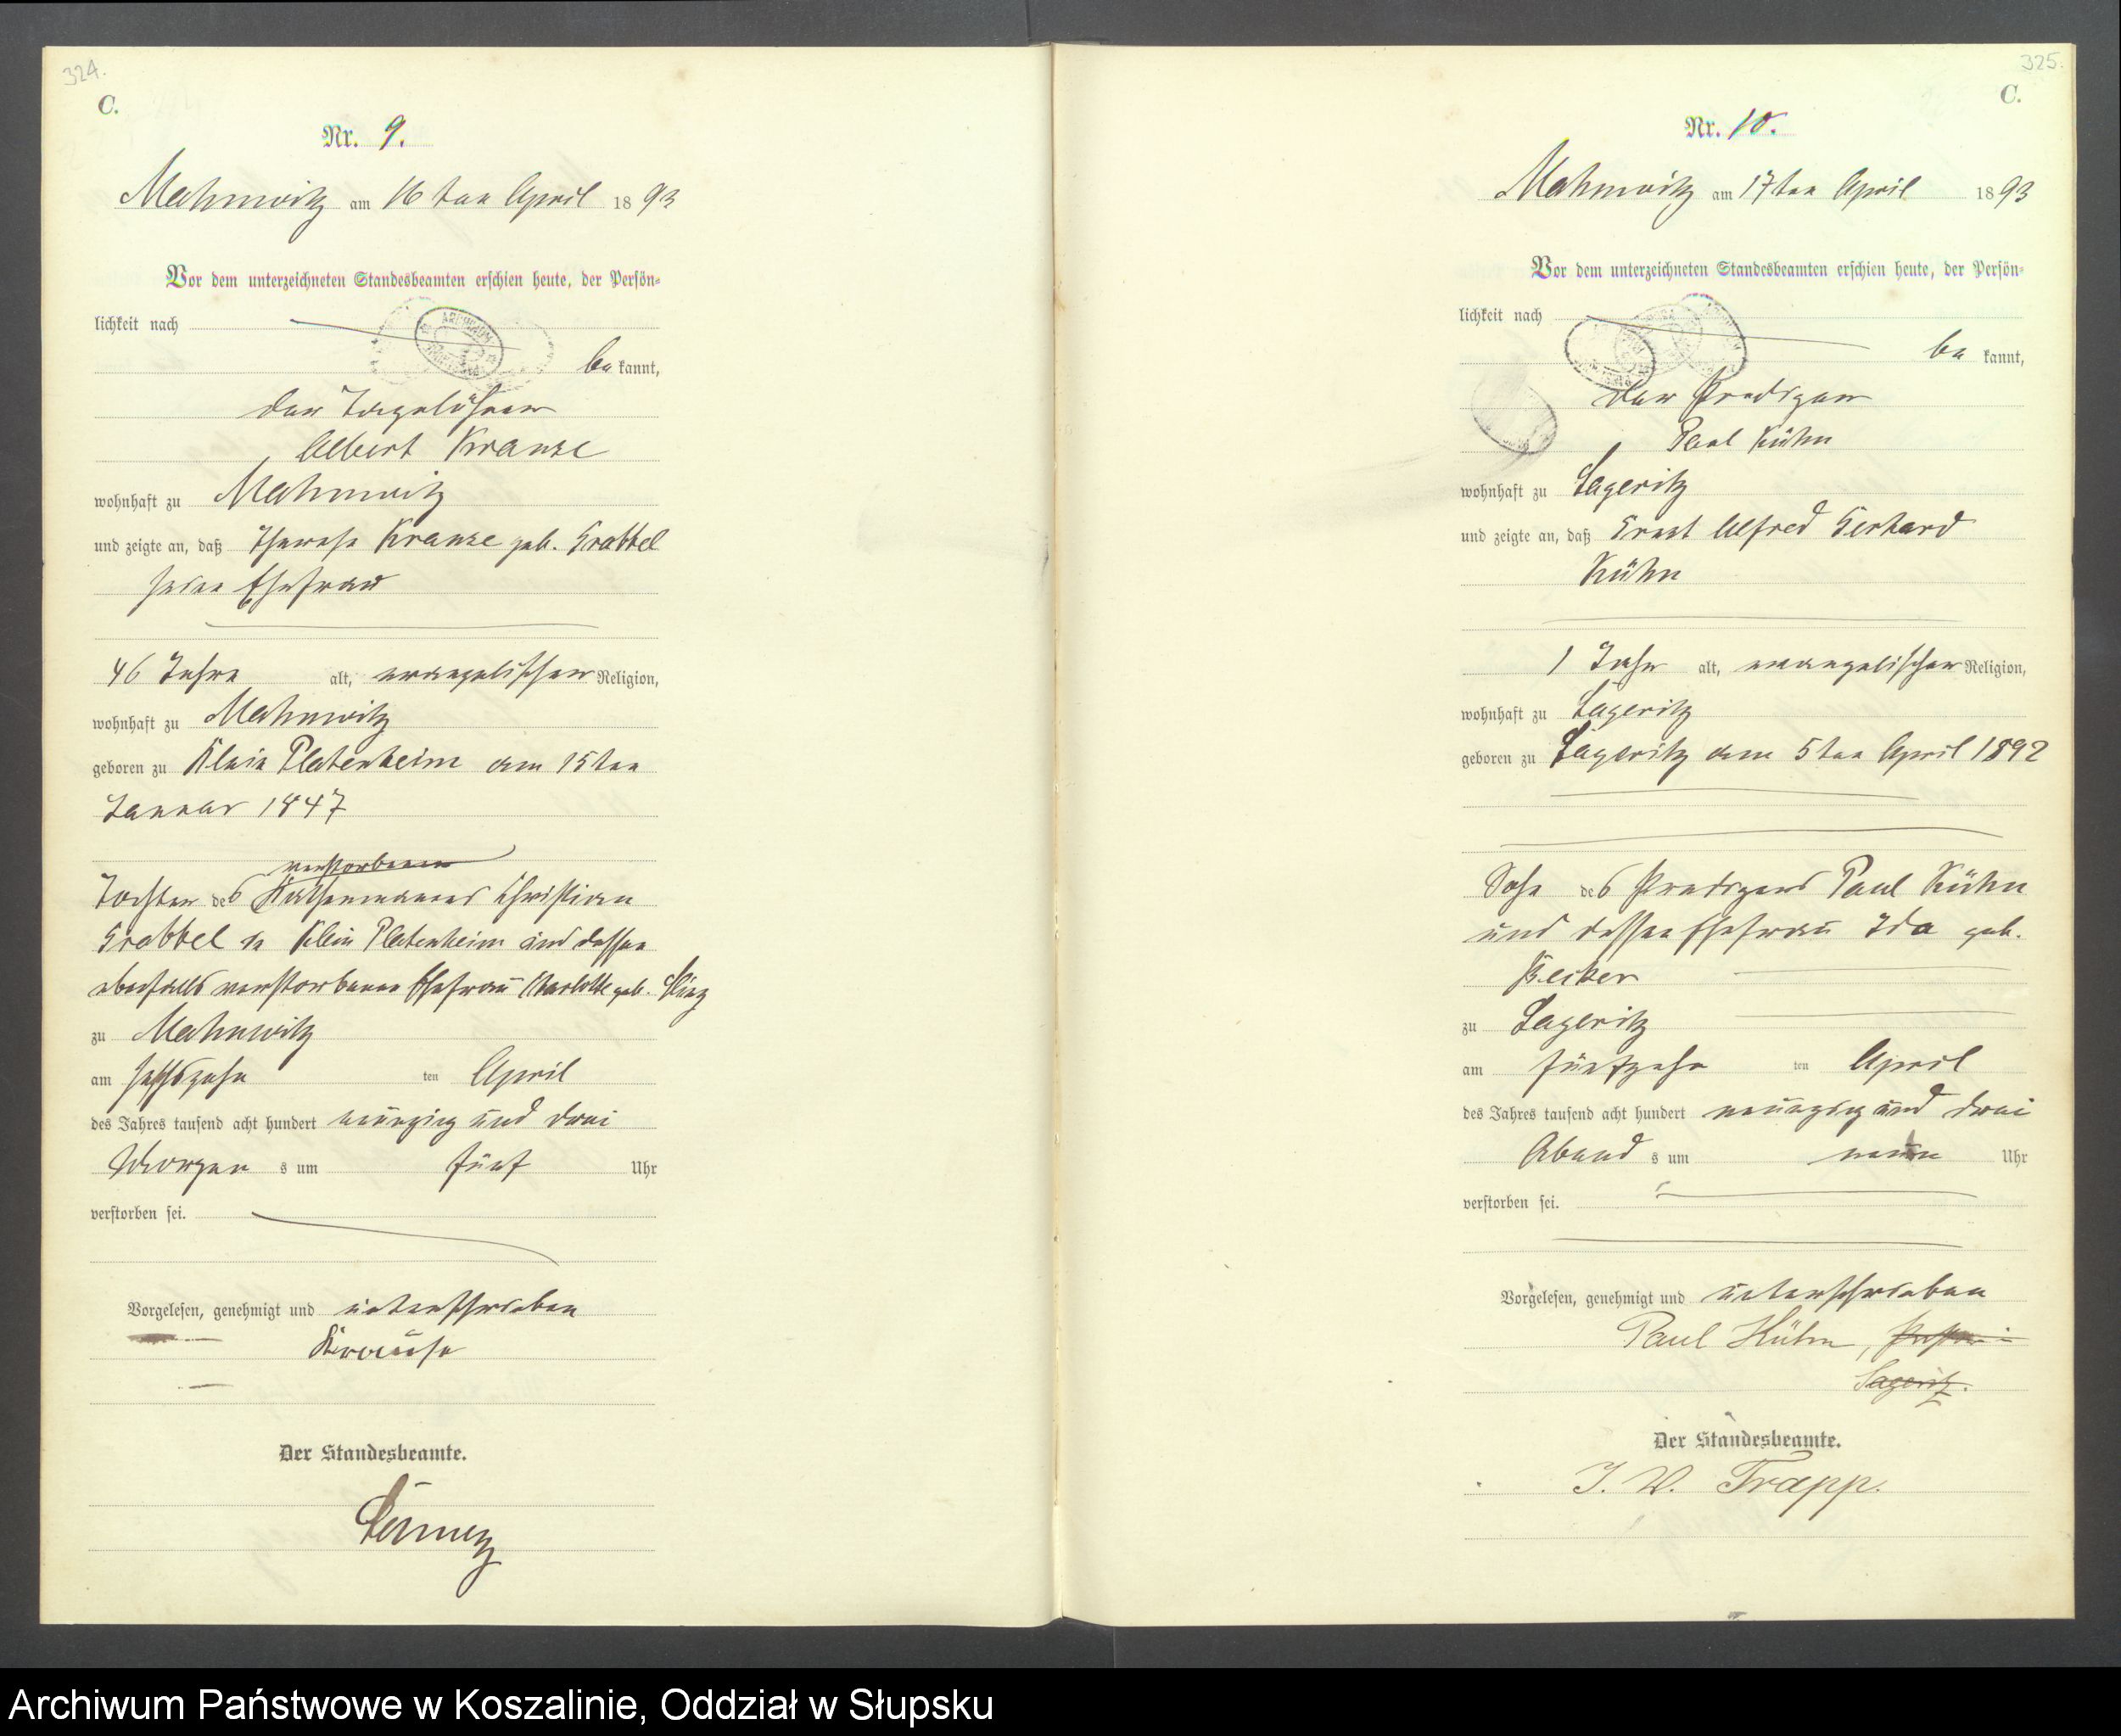 324.
C.
Nr. 9.
Mahnwitz am 16ten April 1893
Vor dem unterzeichneten Standesbeamten erschien heute, der Persön-
lichkeit nach
be kannt,
der Tagelöhner
Albert Krause
wohnhaft zu Mahnwitz
und zeigte an, daß Therese Krause geb. Grabbel
seine Ehefrau
46 Jahre alt, evangelischer Religion,
wohnhaft zu Mahnwitz
geboren zu Klein Platenheim am 15ten
Januar 1847
verstorbenen
Tochter des Käthenmannes Christian
Grabbel in Klein Platenheim und dessen
ebenfalls verstorbener Ehefrau Charlotte geb.
zu Mahnwitz
am sechszehn ten April
des Jahres tausend acht hundert neunzig und drei
Morgen s um fünf Uhr
verstorben sei.
Vorgelesen, genehmigt und unterschrieben
Krause
Der Standesbeamte.
325.
C.
Nr. 10.
Mahnwitz am 17ten April 1893
Vor dem unterzeichneten Standesbeamten erschien heute, der Persön-
lichkeit nach
be kannt,
der Prediger
Paul Kühn
wohnhaft zu Sageritz
und zeigte an, daß Ernst Alfred Gerhard
Kühn
1 Jahr alt, evangelischer Religion,
wohnhaft zu Sageritz
geboren zu Sageritz am 5ten April 1892
Sohn des Predigers Paul Kühn
und dessen Ehefrau Ida geb.
Becker
zu Sageritz
am fünfzehn ten April
des Jahres tausend acht hundert neunzig und drei
Abend s um neun Uhr
verstorben sei.
Vorgelesen, genehmigt und unterschrieben
Paul Kühn, Pastor in
Sageritz.
Der Standesbeamte.
J. V. Trapp.
Archiwum Państwowe w Koszalinie, Oddział w Słupsku